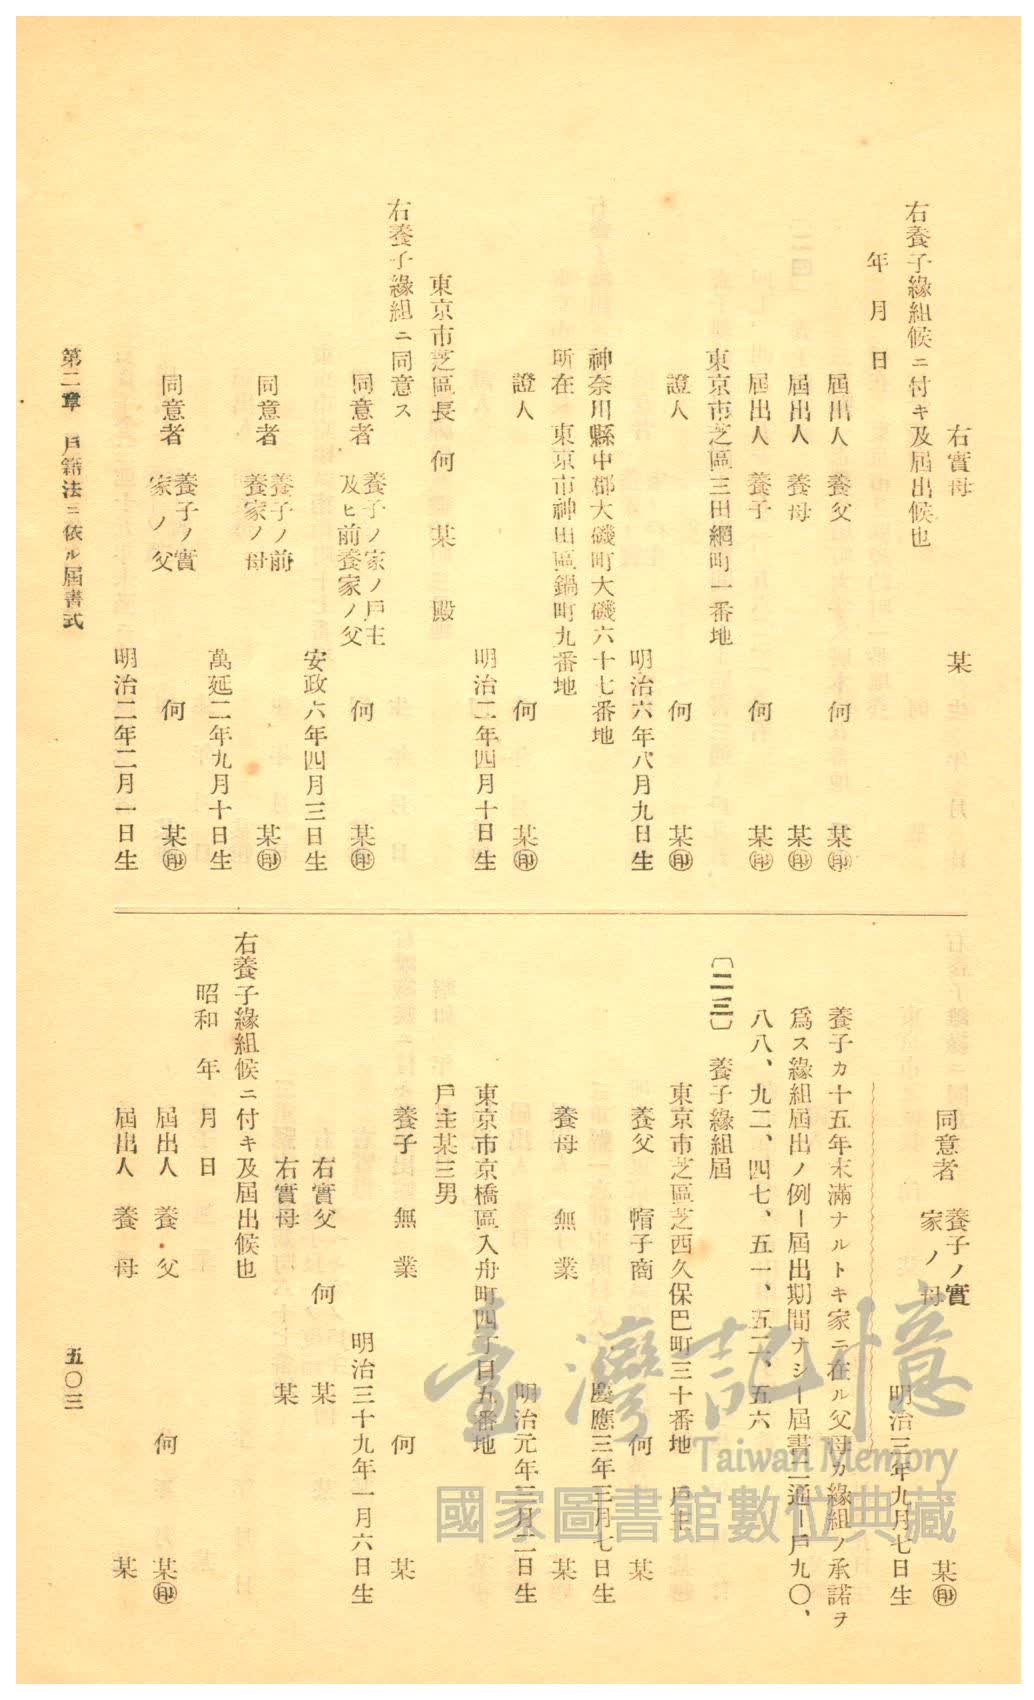 右實母 某
右養子緣組候ニ付キ及屆出候也
年 月 日
屆出人 養父 何 某㊞
屆出人 養母 某㊞
屆出人 養子 何 某㊞
東京市芝區三田網町一番地
證人 何 某㊞
明治六年八月九日生
神奈川縣中郡大磯町大磯六十七番地
所在 東京市神田區鍋町九番地
證人 何 某㊞
明治二年四月十日生
東京市芝區長 何 某 殿
右養子緣組ニ同意ス
同意者 養子ノ家ノ戶主及ヒ前養家ノ父 何 某㊞
安政六年四月三日生
同意者 養子ノ前養家ノ母 某㊞
萬延二年九月十日生
同意者 養子ノ實家ノ父 何 某㊞
明治二年二月一日生
同意者 養子ノ實家ノ母 某㊞
明治三年九月七日生
養子カ十五年未滿ナルトキ家ニ在ル父母カ緣組ノ承諾ヲ
爲ス緣組屆出ノ例ー屆出期間ナシー屆書二通ー戶九〇、
八八、九二、四七、五一、五二、五六
〔二三〕 養子緣組屆
東京市芝區芝西久保巴町三十番地 戶主
養父 帽子商 何 某
慶應三年三月七日生
養母 無業 某
明治元年三月二日生
東京市京橋區入舟町四丁目五番地
戶主某三男
養子 無業 何 某
明治三十九年一月六日生
右實父 何 某
右實母 某
右養子緣組候ニ付キ及屆出候也
昭和 年 月 日
屆出人 養父 何 某㊞
屆出人 養母 某
第二章 戶籍法ニ依ル屆書式
五〇三
臺灣記憶
Taiwan Memory
國家圖書館數位典藏